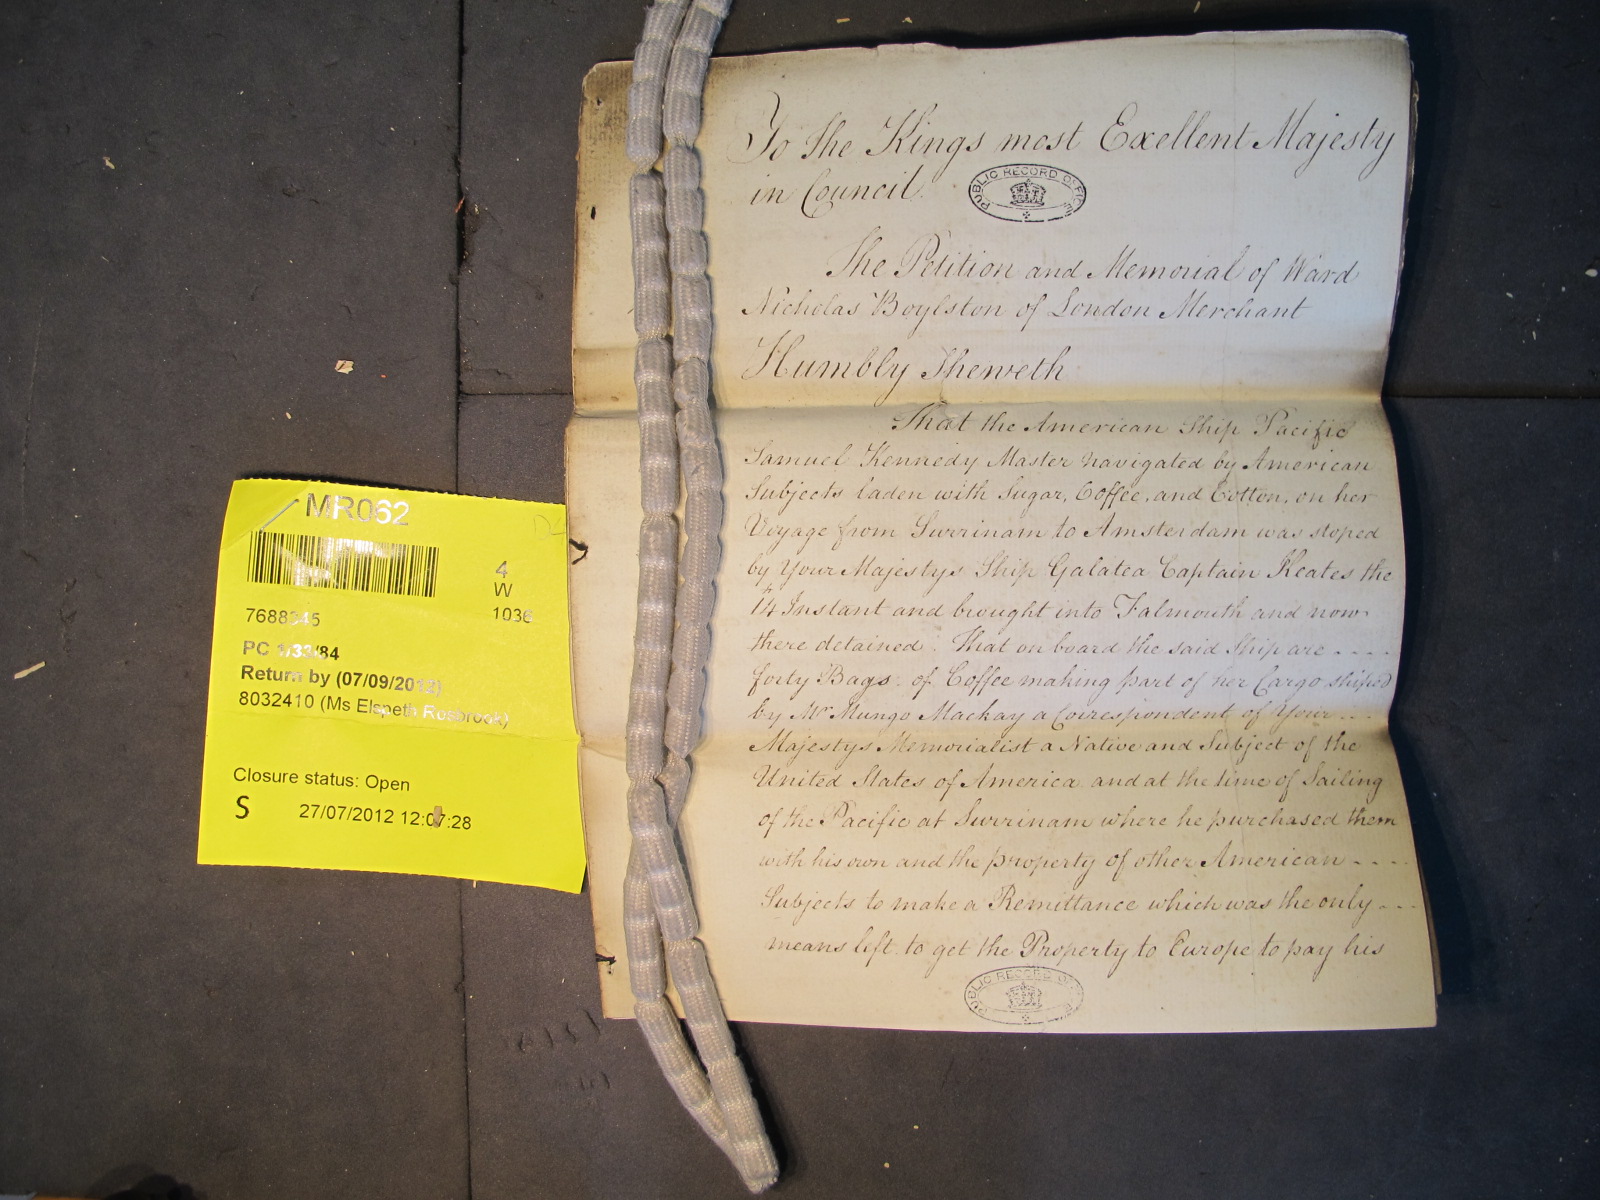 To the Kings most Exellent Majesty
in Council.
PUBLIC RECORD OFFICE
The Petition and Memorial of Ward
Nicholas Boylston of London Merchant
Humbly Sheweth
That the American Ship Pacific
Samuel Kennedy Master navigated by American
Subjects laden with Sugar, Coffee, and Cotton, on her
Voyage from Surrinam to Amsterdam was stoped
by Your Majestys Ship Galatea Captain Keates the
14 Instant and brought into Falmouth and now
there detained. That on board the said Ship are ----
forty Bags of Coffee making part of her Cargo shiped
by Mr Mungo Mackay a Correspondent of Your ---
Majestys Memorialist a Native and Subject of the
United States of America and at the time of Sailing
of the Pacific at Surrinam where he purchased them
with his own and the property of other American ----
Subjects to make a Remittance which was the only ---
means left to get the Property to Europe to pay his
PUBLIC RECORD OFFICE
MR062
4
W
1036
7688345
PC 1/33/84
Return by (07/09/2012)
8032410 (Ms Elspeth Rosbrook)
Closure status: Open
S 27/07/2012 12:07:28